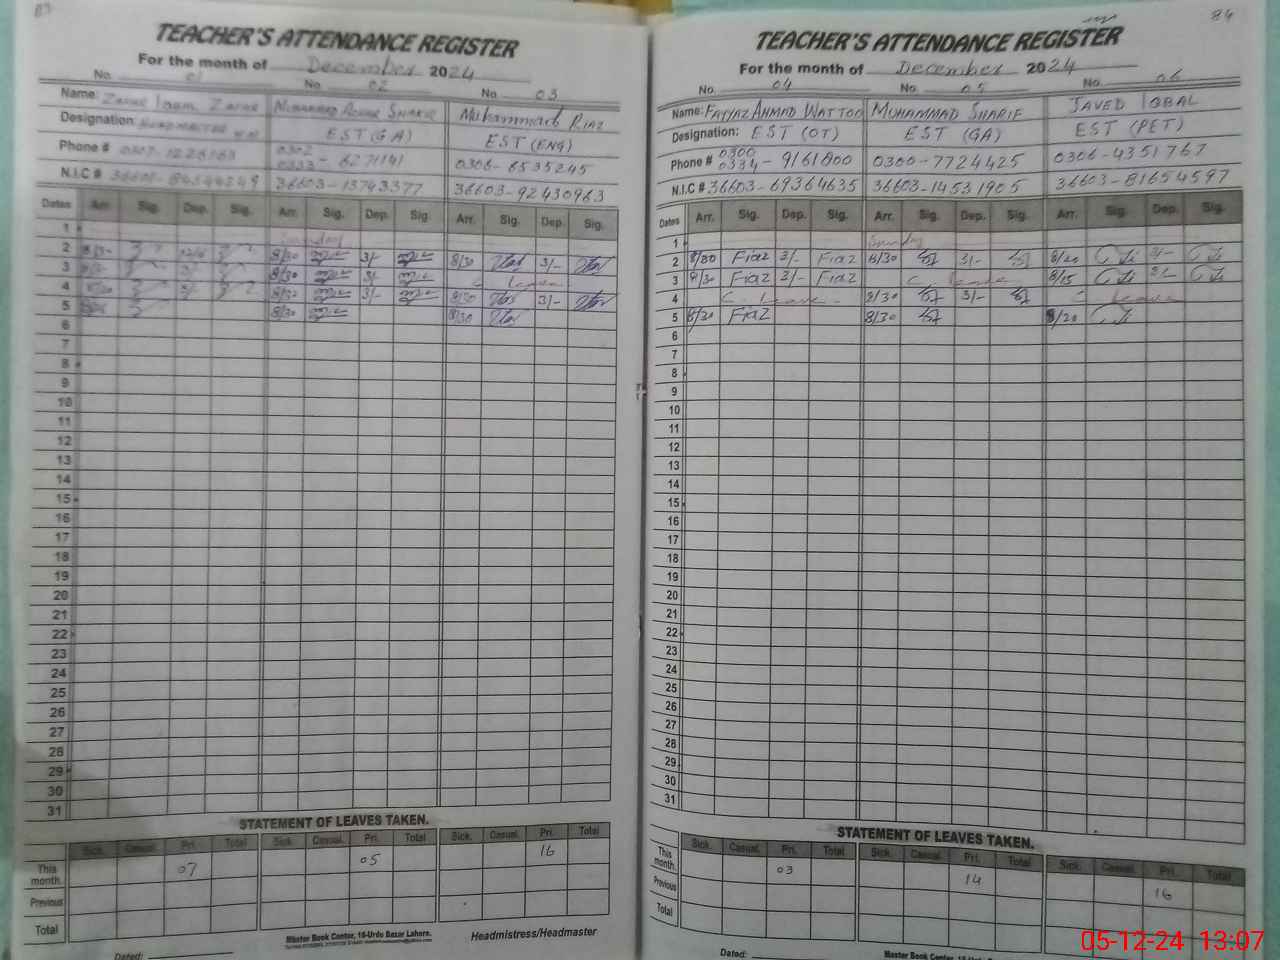 83
TEACHER'S ATTENDANCE REGISTER
For the month of December 2024
No. 01 No. 02 No. 03
Name: Muhammad Riaz
Designation: Headmaster EST (GA) EST (ENG)
Phone # 0302 0333 - 6271141 0306-6535245
N.I.C # 36603-13743377 36603-92430963
Dates Arr. Sig. Dep. Sig. Arr. Sig. Dep. Sig. Arr. Sig. Dep. Sig.
1 Sunday
2 8/30 3/- 8/30 3/-
3 8/30 3/- C leave
4 8/30 3/- 8/30 3/-
5 8/30 8/30
6
7
8
9
10
11
12
13
14
15
16
17
18
19
20
21
22
23
24
25
26
27
28
29
30
31
STATEMENT OF LEAVES TAKEN.
Sick. Casual. Pri. Total Sick. Casual. Pri. Total Sick. Casual. Pri. Total
This month. 07 05 16
Previous
Total
Master Book Center, 16-Urdu Bazar Lahore.
Headmistress/Headmaster
Dated:
84
TEACHER'S ATTENDANCE REGISTER
For the month of December 2024
No. 04 No. 05 No. 06
Name: FAYYAZ AHMAD WATTOO MUHAMMAD SHARIF JAVED IQBAL
Designation: EST (OT) EST (GA) EST (PET)
Phone # 0300 0334 - 9161800 0300-7724425 0306-4351767
N.I.C # 36603-69364635 36603-14531905 36603-81654597
Dates Arr. Sig. Dep. Sig. Arr. Sig. Dep. Sig. Arr. Sig. Dep. Sig.
1 Sunday
2 8/30 Fiaz 3/- Fiaz 8/30 3/- 8/20 3/-
3 8/30 Fiaz 3/- Fiaz C leave 8/15 3/-
4 C. Leave 8/30 3/- C leave
5 8/20 Fiaz 8/30 8/20
6
7
8
9
10
11
12
13
14
15
16
17
18
19
20
21
22
23
24
25
26
27
28
29
30
31
STATEMENT OF LEAVES TAKEN.
Sick. Casual. Pri. Total Sick. Casual. Pri. Total Sick. Casual. Pri. Total
This month. 03 14 16
Previous
Total
Dated:
Master Book Center,
05-12-24 13:07